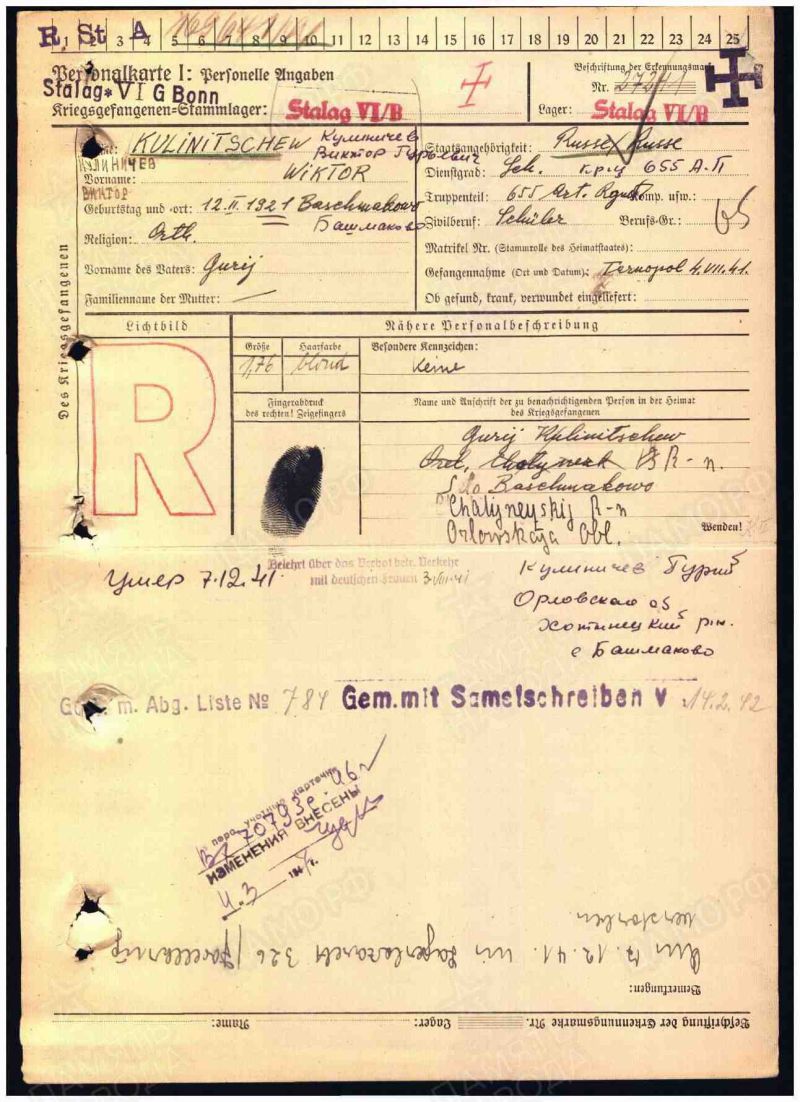 R St A
1 2 3 4 5 6 7 8 9 10 11 12 13 14 15 16 17 18 19 20 21 22 23 24 25
Personalkarte I: Personelle Angaben
Stalag VI G Bonn
Kriegsgefangenen-Stammlager: Stalag VI/B
Beschriftung der Erkennungsmarke
Nr. 27241
Lager: Stalag VI/B
Des Kriegsgefangenen
Name: KULINITSCHEW
Куличичев
Виктор Гурьевич
КУЛИНИЧЕВ
Vorname: WIKTOR
ВИКТОР
Geburtstag und -ort: 12.II.1921 Baschmakowo
Башмаково
Religion: Orth.
Vorname des Vaters: Gurij
Familienname der Mutter: —
Staatsangehörigkeit: Russe / Russe
Dienstgrad: Sch. кр-ц 655 А.П
Truppenteil: 655 Art. Rgmt Komp. usw.:
Zivilberuf: Schüler Berufs-Gr.:
Matrikel Nr. (Stammrolle des Heimatstaates):
Gefangennahme (Ort und Datum): Ternopol 4.VII.41.
Ob gesund, krank, verwundet eingeliefert:
Lichtbild
R
Nähere Personalbeschreibung
Größe Haarfarbe Besondere Kennzeichen:
1,76 blond Keine
Fingerabdruck
des rechten! Zeigefingers
Name und Anschrift der zu benachrichtigenden Person in der Heimat
des Kriegsgefangenen
Gurij Kulinitschew
Orel, R-n.
Baschmakowo
Chatyneyskij R-n
Orlowskaja Obl.
Wenden!
Belehrt über das Verbot betr. Verkehr
mit deutschen Frauen 3.VIII.41
Умер 7.12.41.
Куличичев Гурий
Орловская об
Хотинецкий р-н.
с Башмаково
m. Abg. Liste № 784 Gem. mit Samelschreiben v 14.2.42
учетная карточка
70793
ИЗМЕНЕНИЯ ВНЕСЕНЫ
Bemerkungen:
Am 7.12.41. im Lagerlazarett 326 / Forellkrug
verstorben
Beschriftung der Erkennungsmarke Nr. Lager: Name: